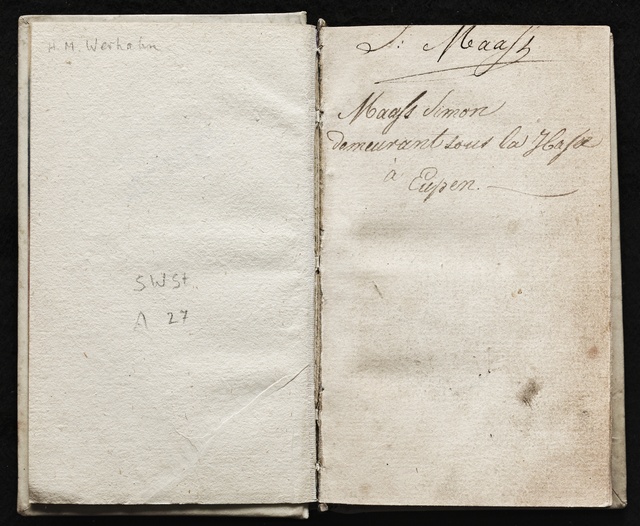 H. M. Werhahn
SWSt.
A 27
S: Maaß
Maaß Simon
demeurant sous la Hase
à
Eupen.